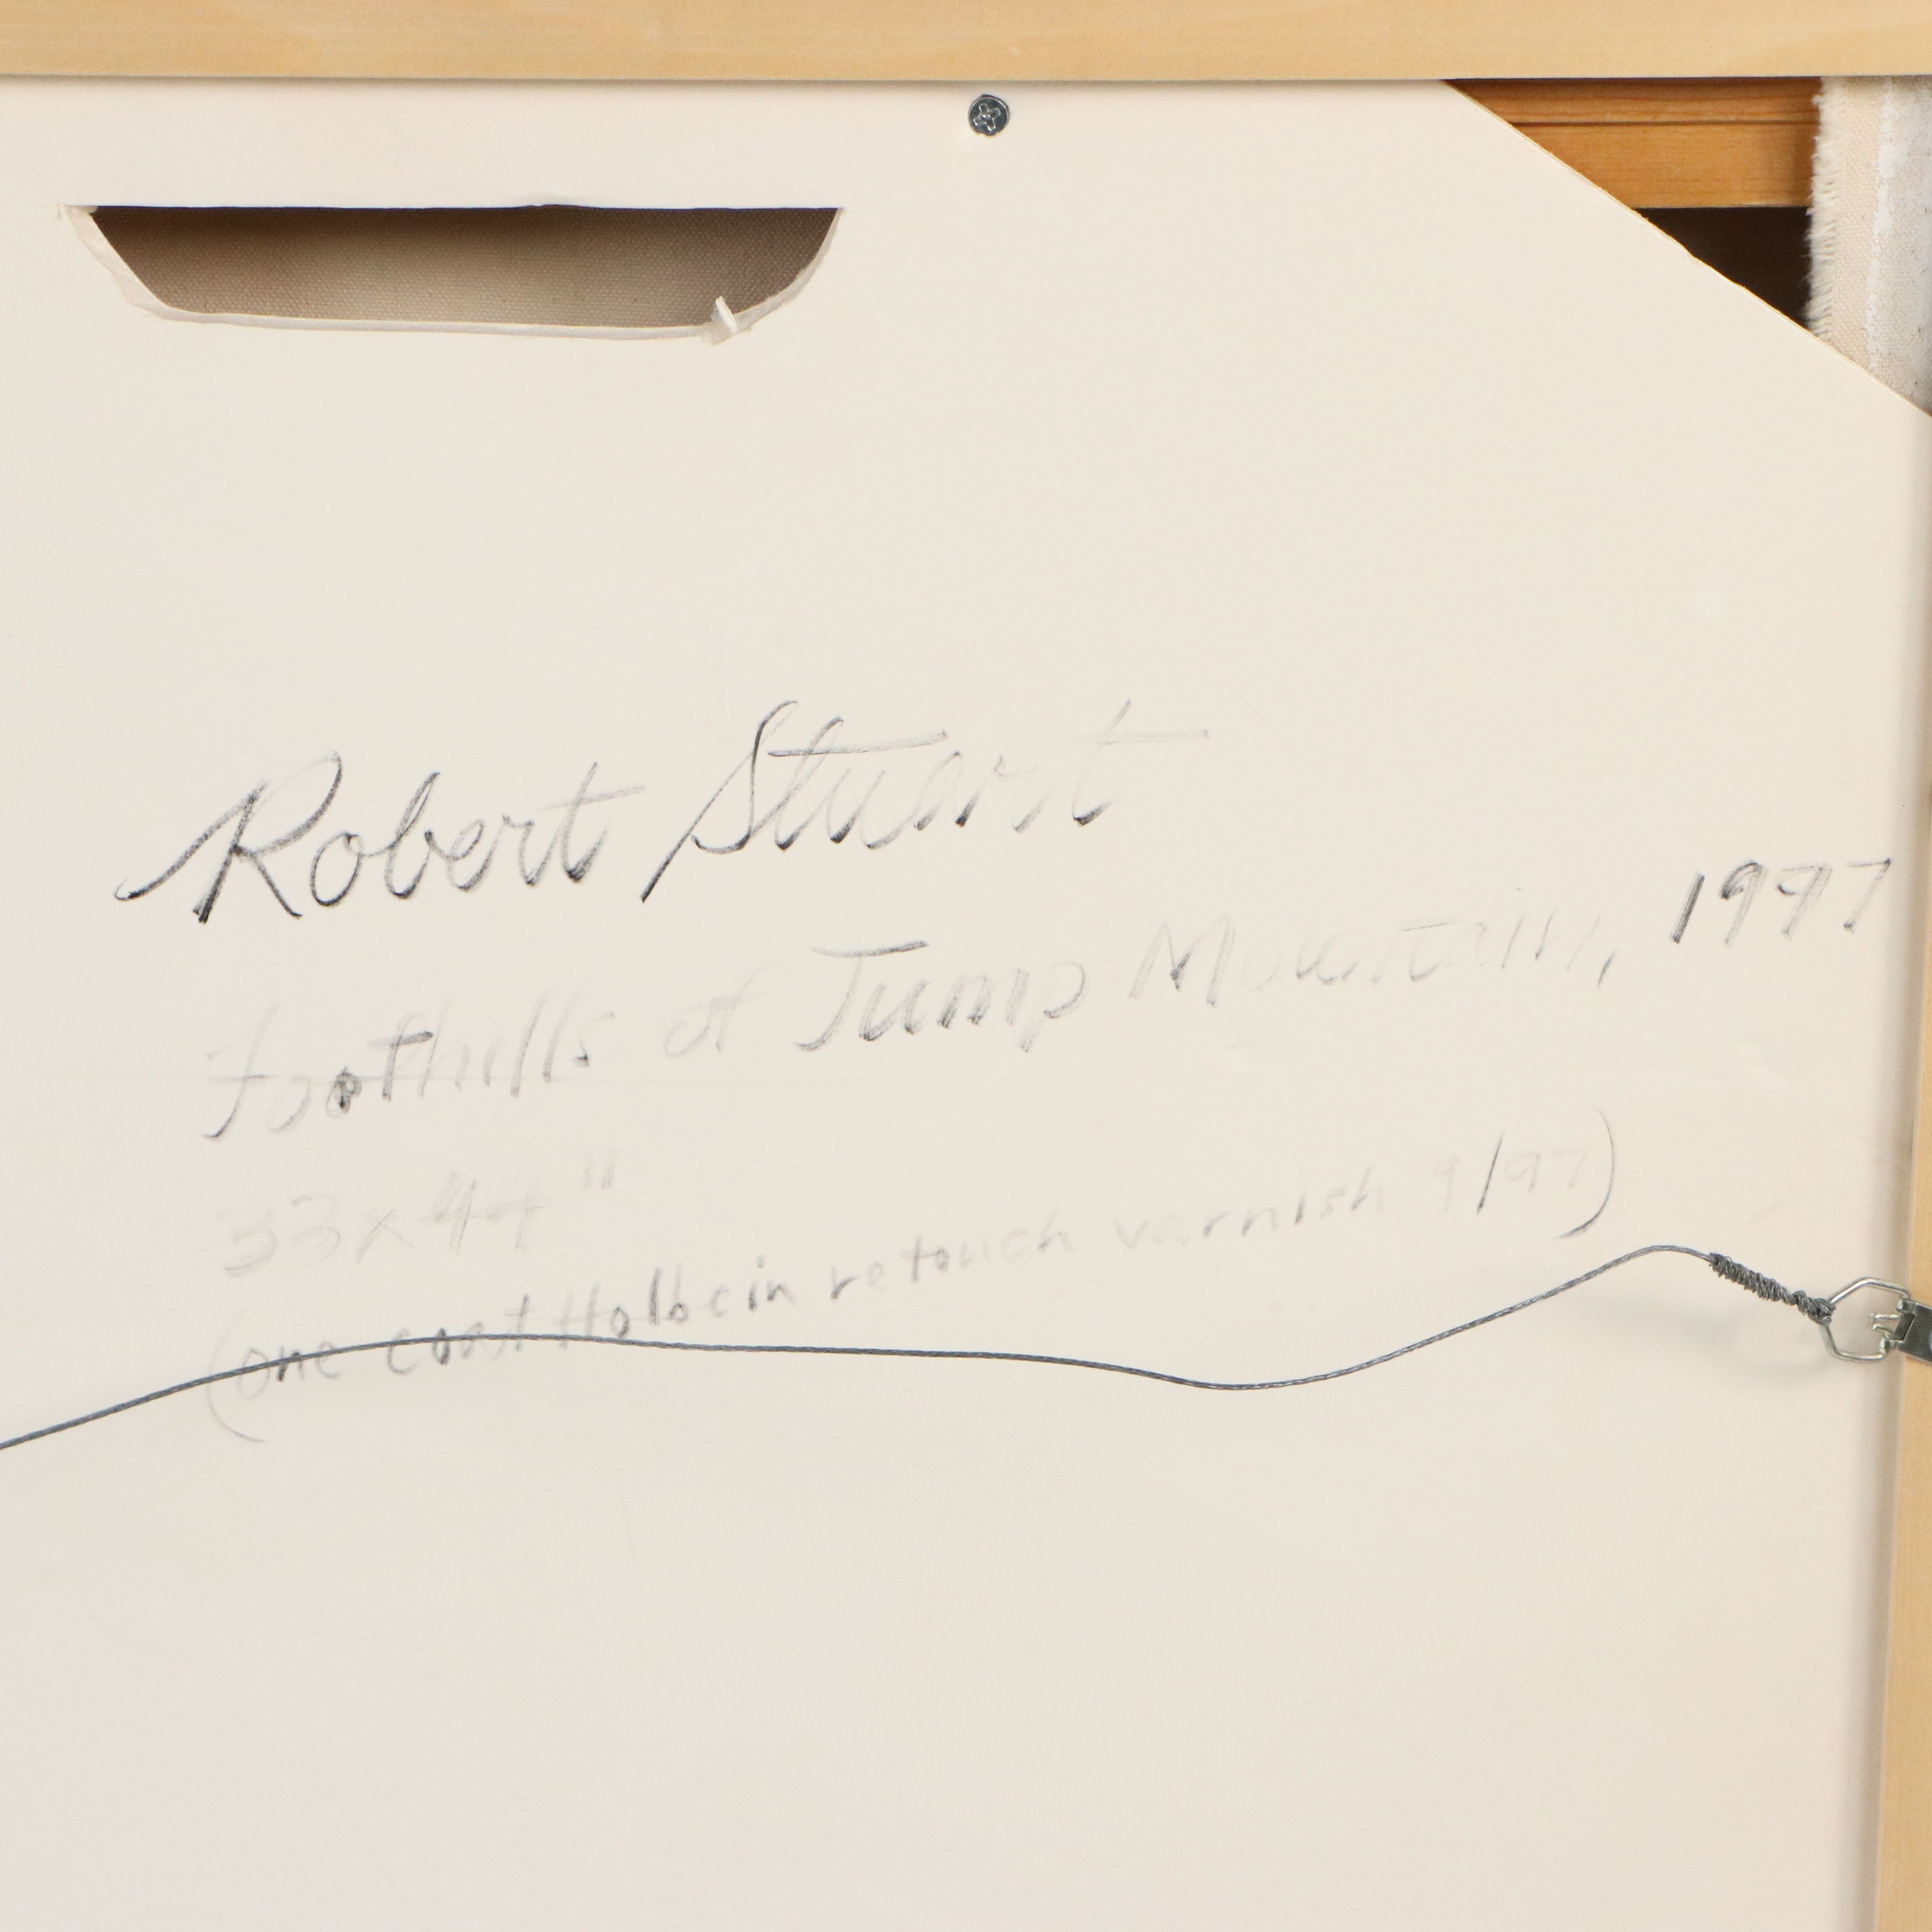 Robert Stuart
foothills of Jump Mountain, 1997
33 x 44"
(one coat Holbein retouch varnish 9/97)